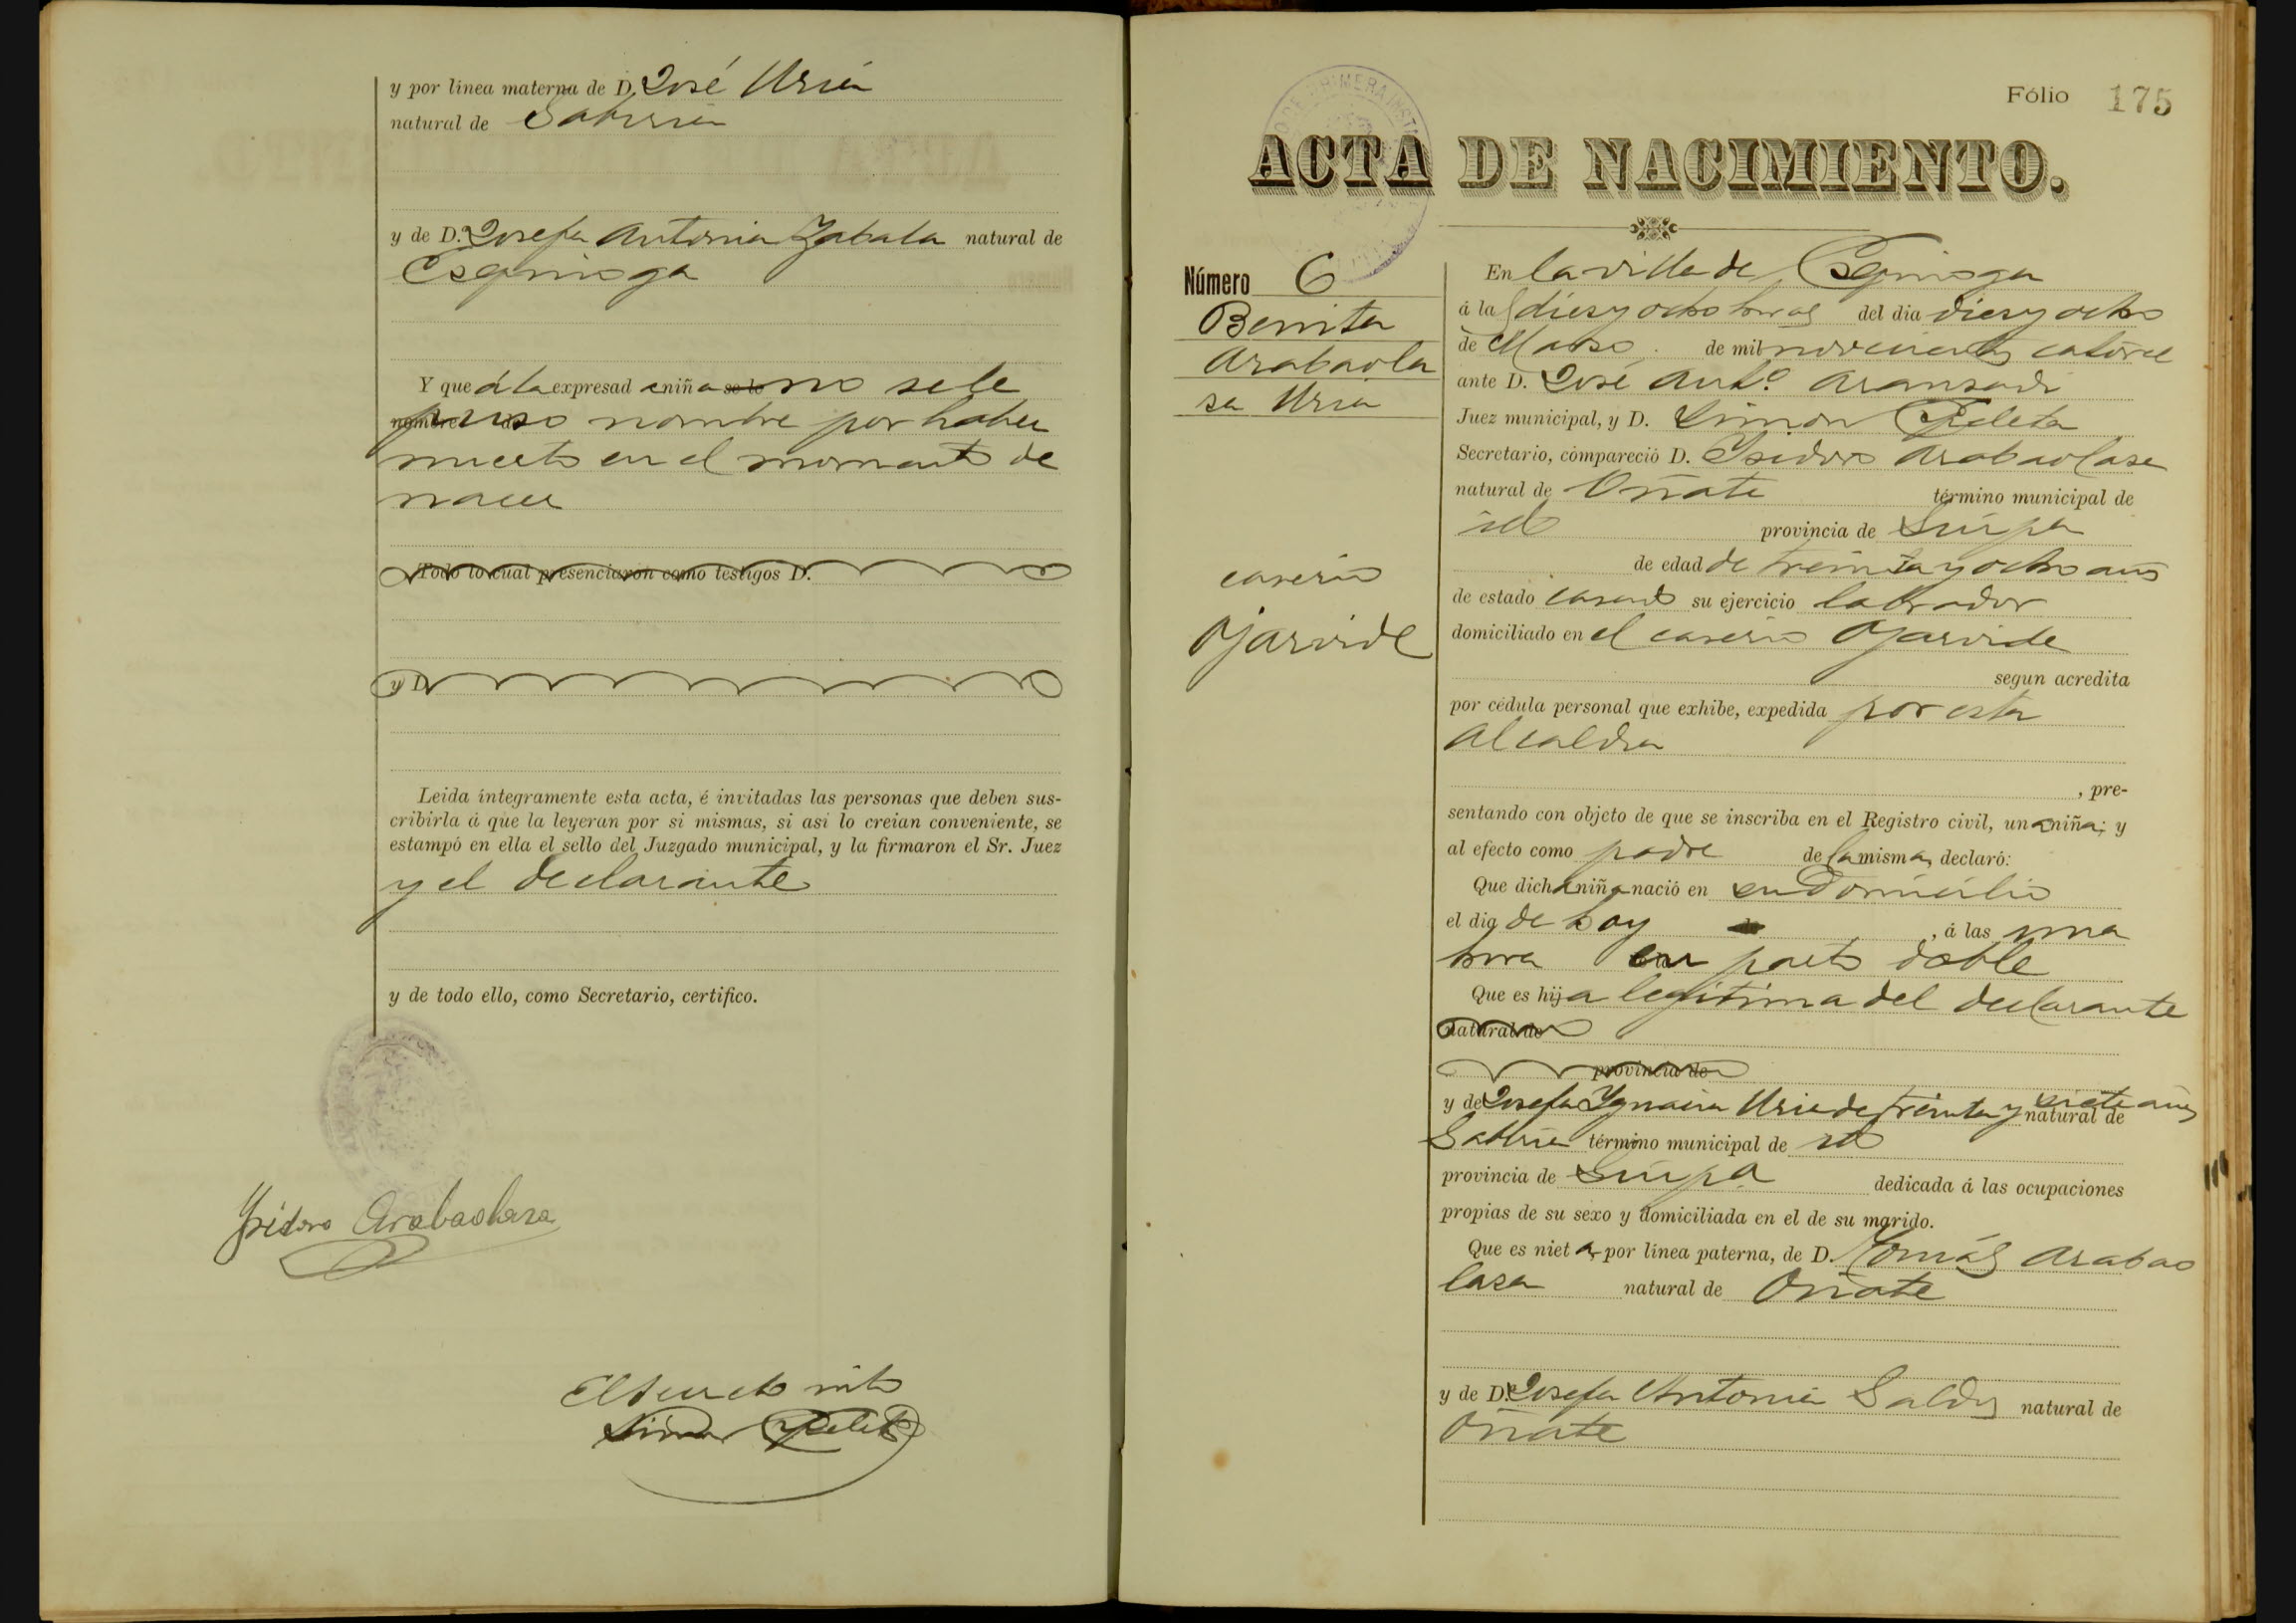 y por línea materna de D. José Uria
natural de Gabiria
y de D.ª Josefa Antonia Zabala natural de
Ezquioga
Y que á la expresada niña se le no se le
nombre puso nombre por haber
muerto en el momento de
nacer
Todo lo cual presenciaron como testigos D.
y D.
Leida íntegramente esta acta, é invitadas las personas que deben sus-
cribirla á que la leyeran por si mismas, si asi lo creian conveniente, se
estampó en ella el sello del Juzgado municipal, y la firmaron el Sr. Juez
y el declarante
y de todo ello, como Secretario, certifico.
Ysidoro Arabaolaza
Simon
Fólio 175
ACTA DE NACIMIENTO.
Número 6
Benita
Arabaola
za Uria
caserio
Ojarvide
En la villa de Ezquioga
á las diez y ocho horas del dia diez y ocho
de Marzo de mil novecientos catorce
ante D. José Ant.º Aranzadi
Juez municipal, y D. Simon
Secretario, compareció D. Ysidoro Arabaolaza
natural de Oñate término municipal de
id provincia de Guipa
de edad de treinta y ocho años
de estado casado su ejercicio labrador
domiciliado en el caserio Ojarvide
segun acredita
por cédula personal que exhibe, expedida por esta
Alcaldia
, pre-
sentando con objeto de que se inscriba en el Registro civil, una niña; y
al efecto como padre de la misma, declaró:
Que dicha niña nació en su domicilio
el dia de hoy de , á las una
hora en parto doble
Que es hija legitima del declarante
natural de
provincia de
y de Josefa Ygnacia Uria de treinta y siete años natural de
Gabiria término municipal de id
provincia de Guipa dedicada á las ocupaciones
propias de su sexo y domiciliada en el de su marido.
Que es nieta, por línea paterna, de D. Tomás Arabao
laza natural de Oñate
y de D.ª Josefa Antonia Galdos natural de
Oñate